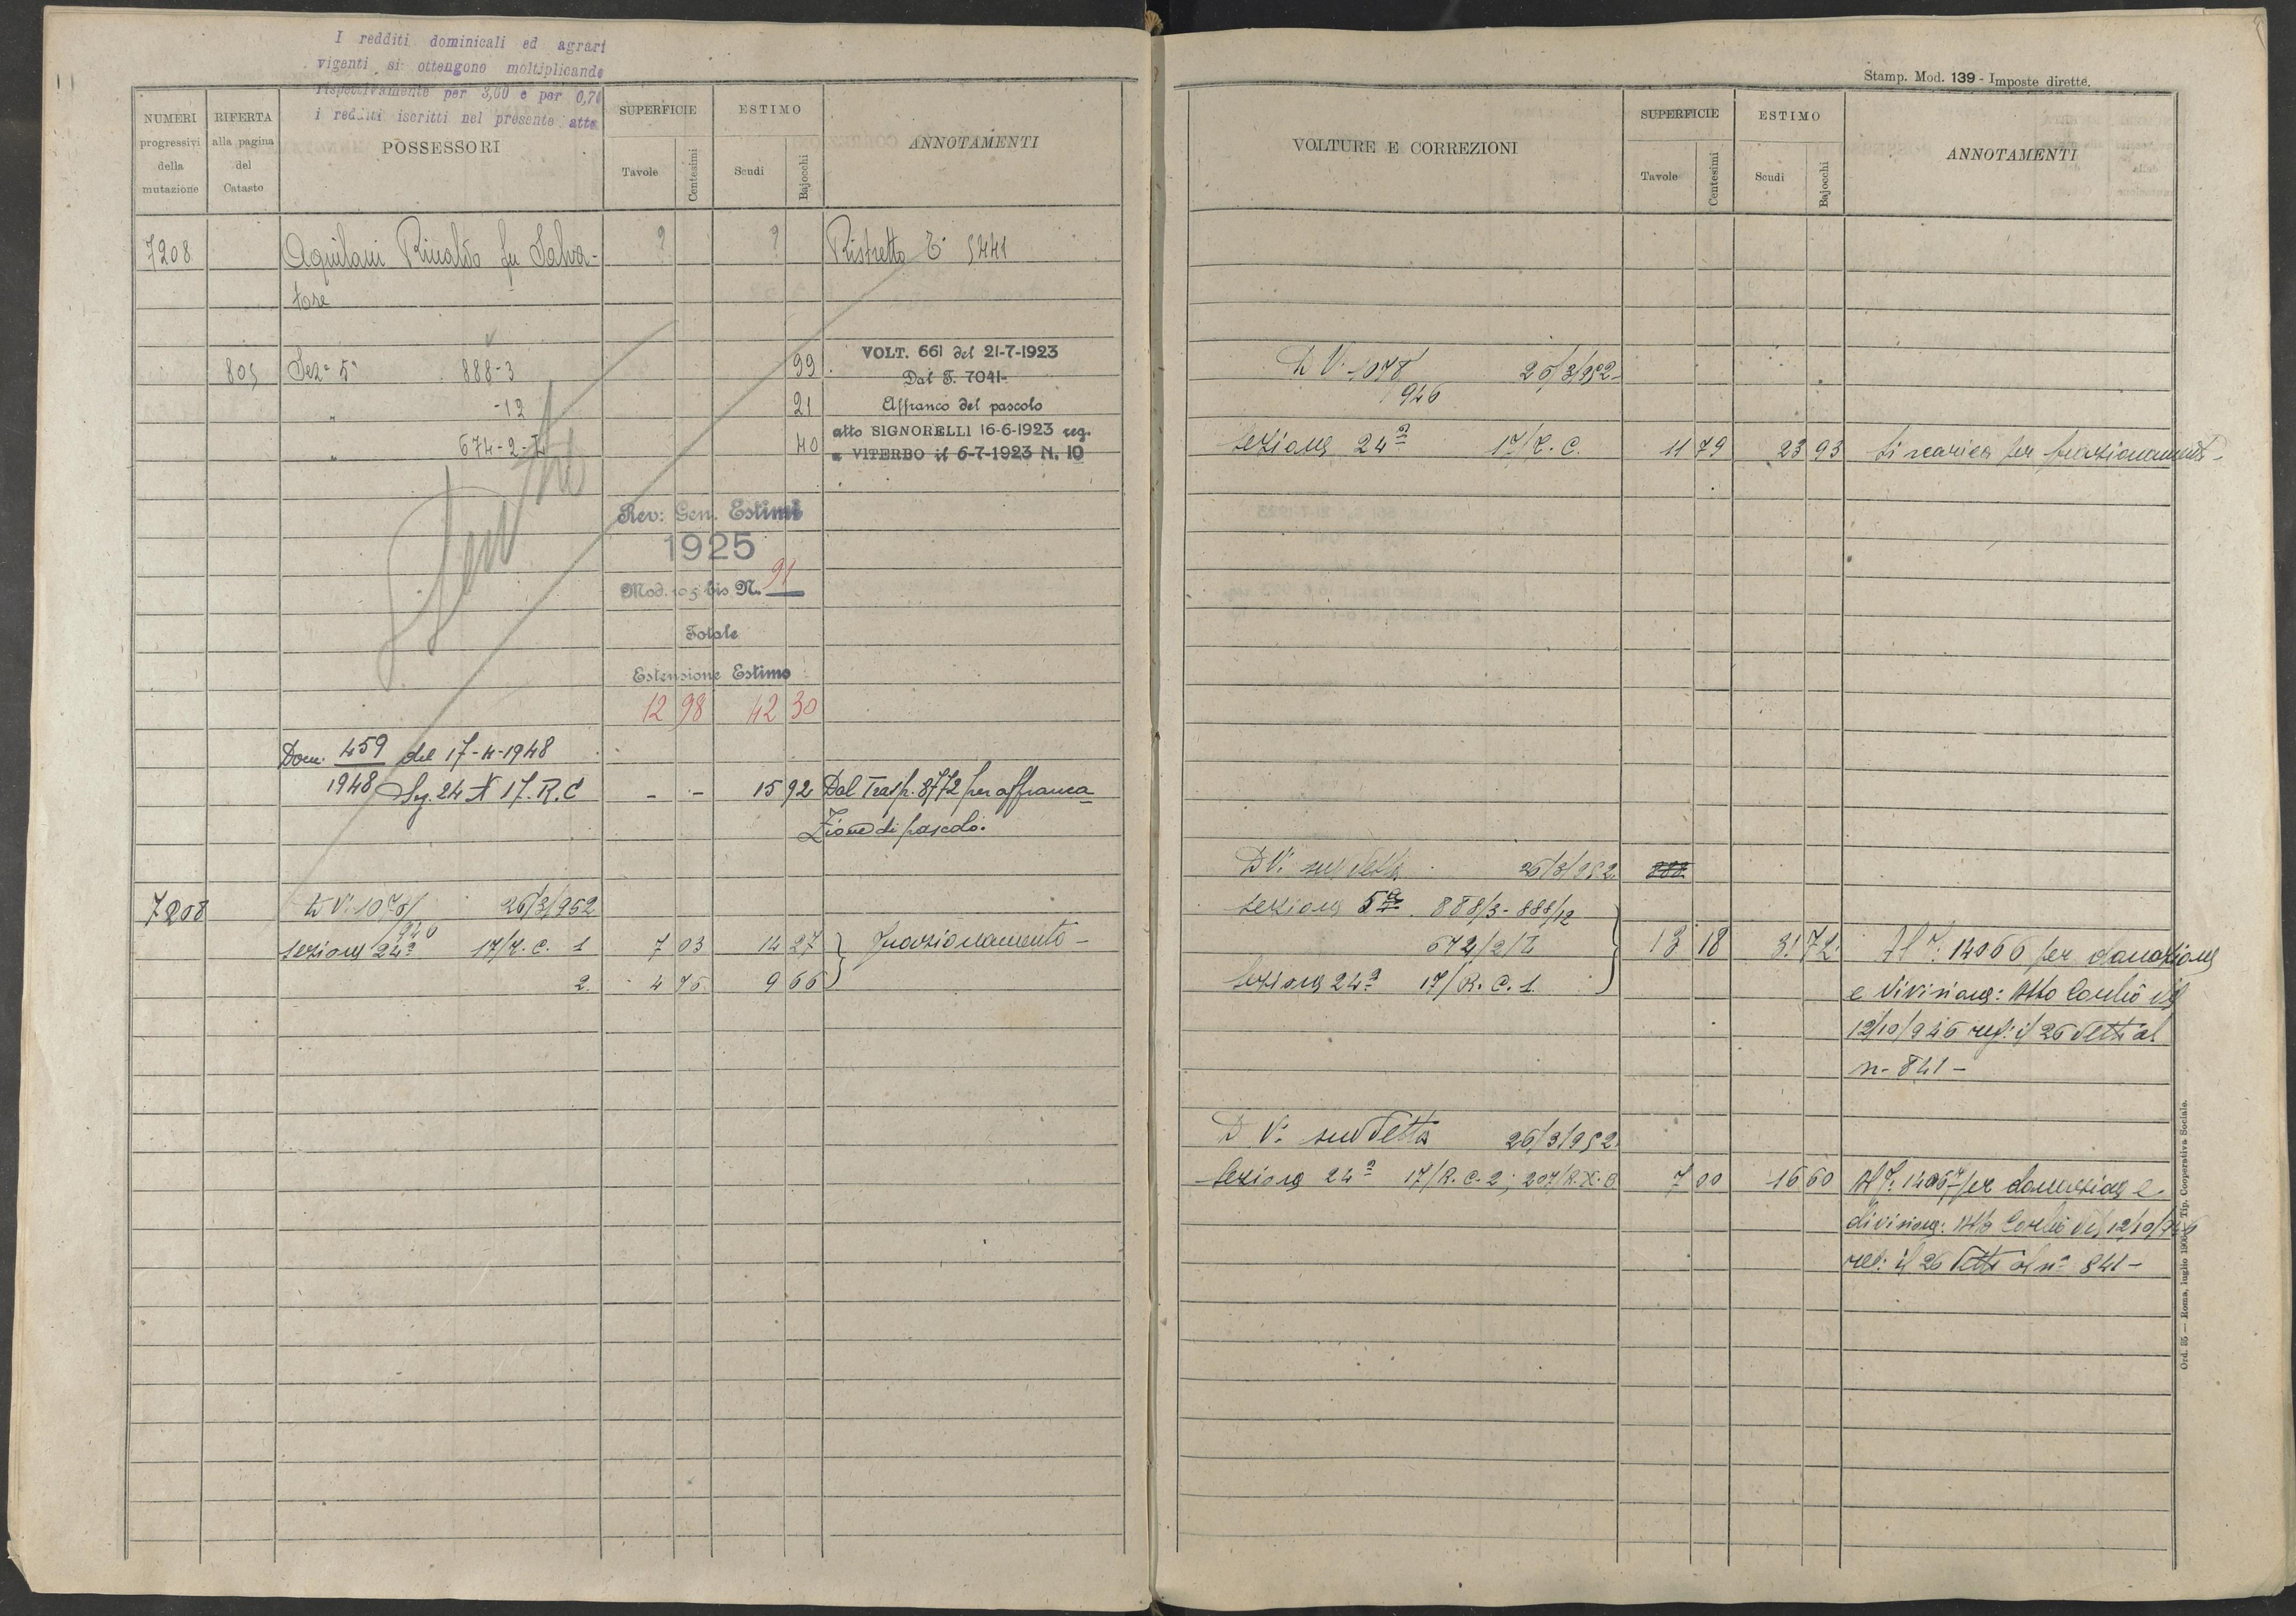 I redditi dominicali ed agrari
vigenti si ottengono moltiplicando
rispettivamente per 3,60 e per 0,70
i redditi iscritti nel presente atto
NUMERI
progressivi
della
mutazione
RIFERTA
alla pagina
del
Catasto
POSSESSORI
SUPERFICIE
Tavole
Centesimi
ESTIMO
Scudi
Bajocchi
ANNOTAMENTI
7208 Aquilani Rinaldo fu Salva- ? ? Ristretto T. 5441
tore
805 Sez.e 5a 888-3 99
" -12 21
" 674-2-I 40
VOLT. 661 del 21-7-1923
Dal T. 7041-
Affranco del pascolo
atto SIGNORELLI 16-6-1923 reg.
a VITERBO il 6-7-1923 N. 10
Rev: Gen. Estimi
1925
Mod. 105 bis N. 91
Totale
Estensione Estimo
12 98 42 30
Dom. 459 del 17-4-1948
1948 Sez. 24 N 17. R.C - - 15 92 Dal Trasp. 8772 per affranca
zione di pascolo.
7208 D V. 1078/ 26/3/952
946
sezione 24a 17/R. C. 1 7 03 14 27 Frazionamento -
2. 4 76 9 66
Stamp. Mod. 139 - Imposte dirette.
VOLTURE E CORREZIONI
SUPERFICIE
Tavole
Centesimi
ESTIMO
Scudi
Bajocchi
ANNOTAMENTI
D V. 1078/ 26/3/952-
946
sezione 24a 17/R. C. 11 79 23 93 Si scarica per frazionamento-
D V. suddetta 26/3/952. 888
sezione 5a 888/3- 888/12
674/2/I 13 18 31 72 Al T. 14066 per donazione
Sezione 24a 17/R. C. 1. e divisione: Atto Cordio del
12/10/946 reg: il 26 detto al
n- 841-
D V. suddetta 26/3/952.
Sezione 24a 17/R. C. 2; 207/R.X.C 7 00 16 60 Al T. 14067 per donazione e
divisione: Atto Cordio del 12/10/946
reg: il 26 detto al n° 841-
Ord. 35 — Roma, luglio 1906, Tip. Cooperativa Sociale.